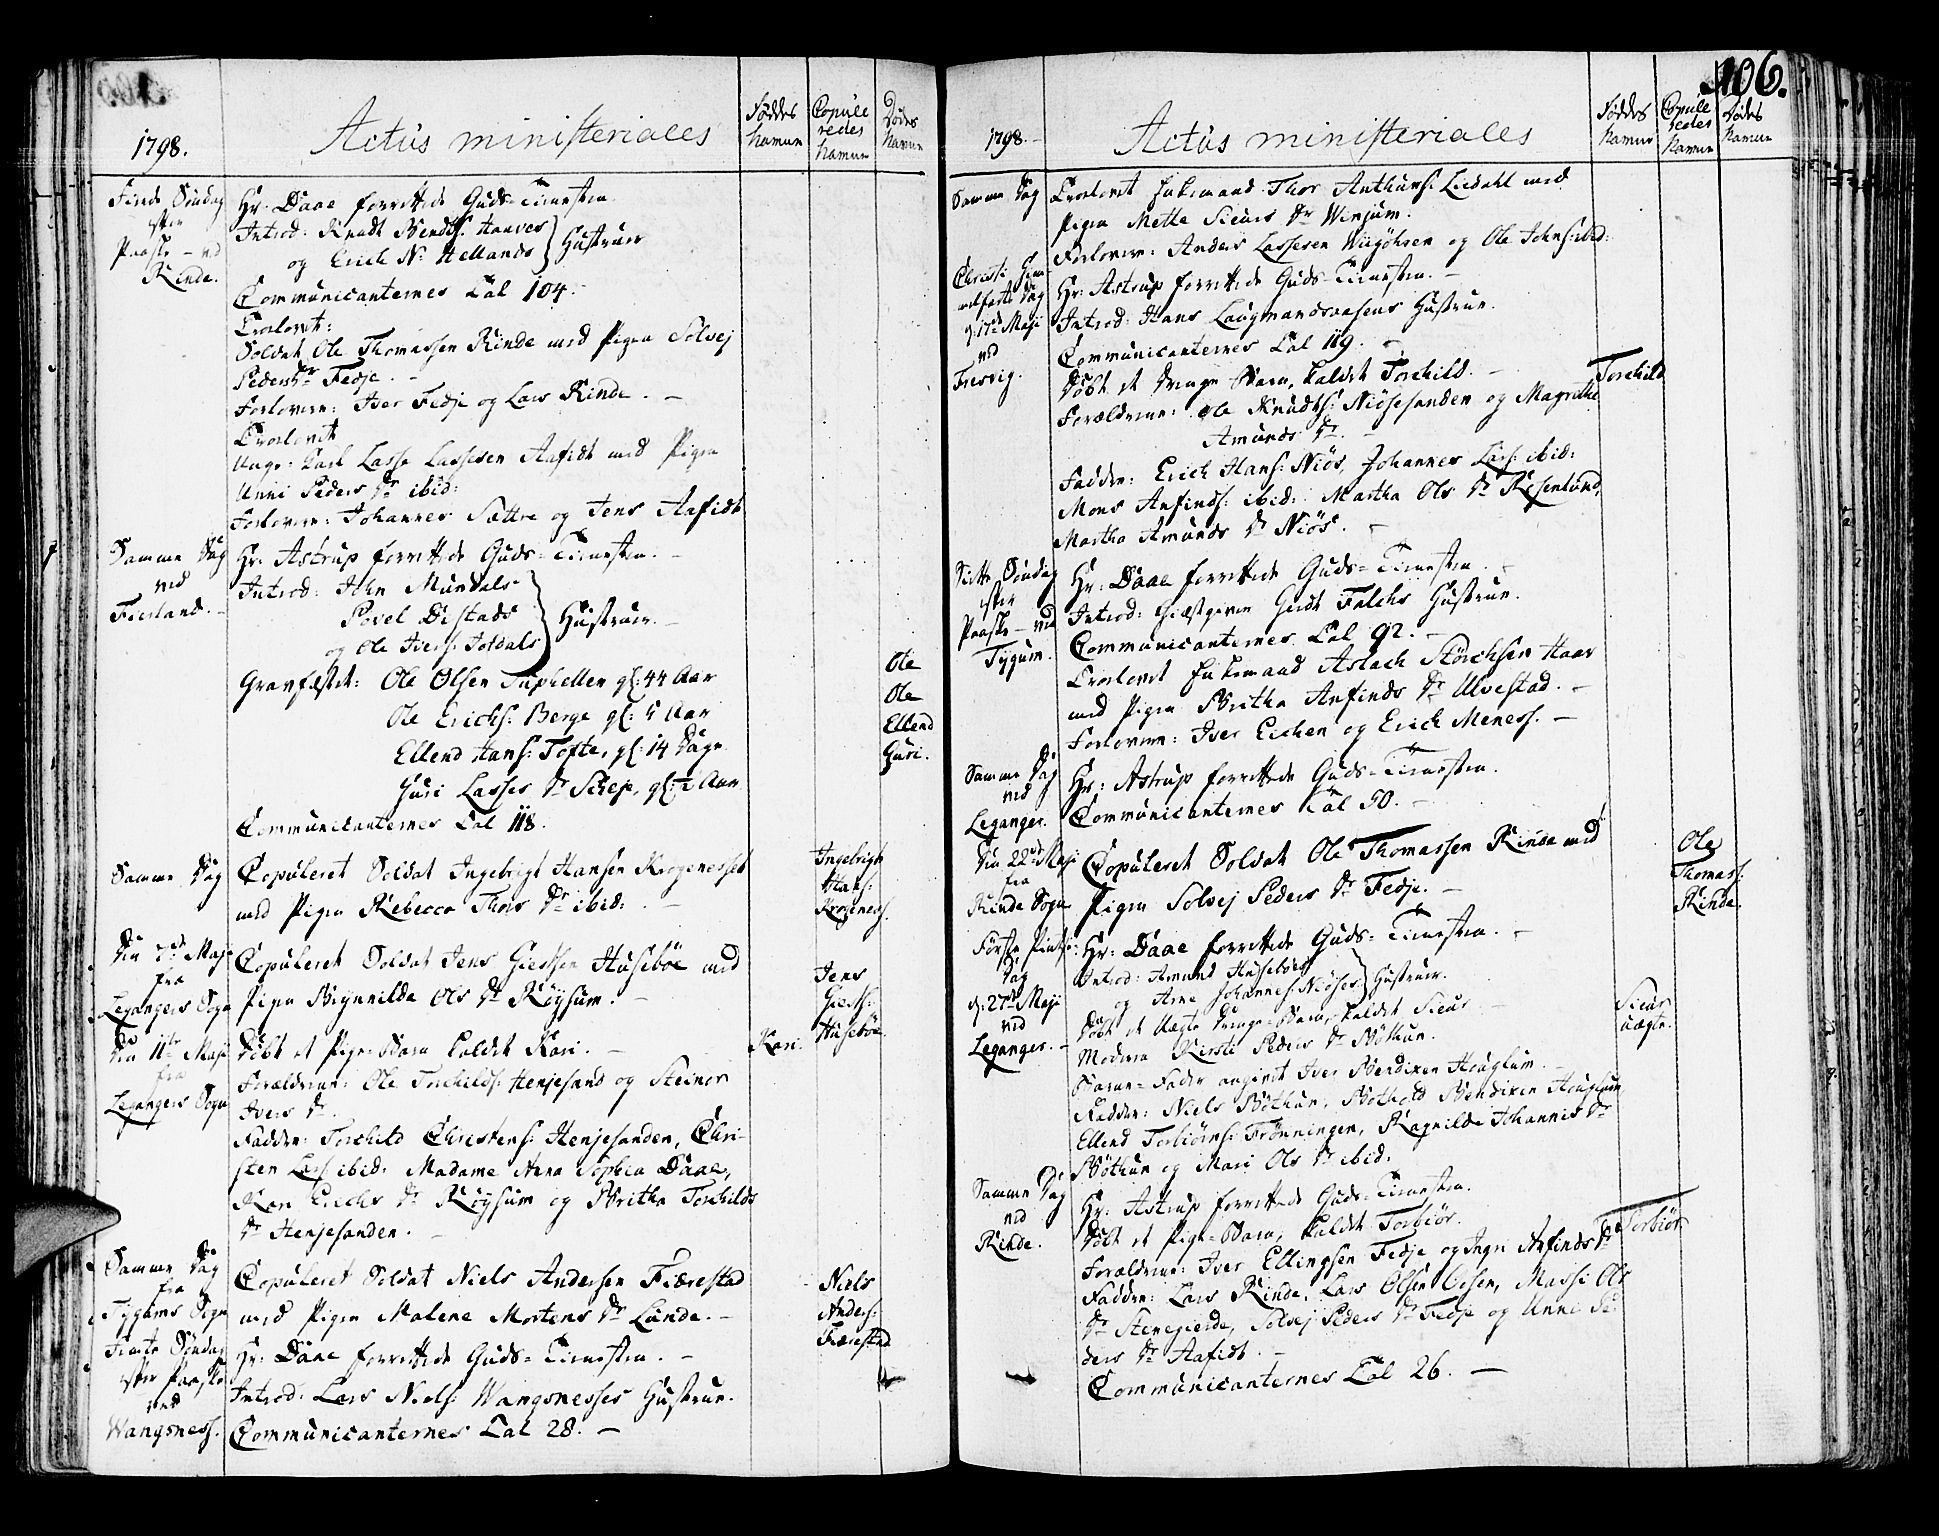 1798.
Actus ministeriales
Føddes Navne
Copule redes Navne
Dødes Navne
Fierde Søndag efter Paaske – ved Rinde.
Hr. Daae forrettede Guds-Tienesten.
Introd: Knudt Bendts: Haaves
og Erich N: Hellands } Hustruer
Communicanternes Tal 104.
Trolovet:
Soldat Ole Thomassen Rinde med Pigen Solvej
Peders Dr Fedje. –
Forlovere: Iver Fedje og Lars Rinde. –
Trolovet
Unge-Karl Lasse Lassesen Aafedt med Pigen
Unni Peders Dr ibid:
Forlovere: Johannes Sættre og Jens Aafedt
Samme Dag ved Fierland. –
Hr. Astrup forrettede Guds-Tienesten. –
Introd: John Mundals
Povel Distads
og Ole Ivers: Jordals } Hustruer. –
Gravfæstet: Ole Olsen Suphellen gl: 44 Aar
Ole Erichs: Berge gl: 5 Aar
Ellend Hans: Tofte, gl: 14 Dage
Guri Lasses Dr gl: ½ Aar
Ole
Ole
Ellend
Guri.
Communicanternes Tal 118.
Samme Dag
Copuleret Soldat Ingebrigt Hansen Krogenesset
med Pigen Rebecca Thors Dr ibid: –
Ingebrigt
Hans:
Krogeness.
Den 7de Maji fra Leganger Sogn
Copuleret Soldat Jens Giertsen Husebøe med
Pigen Brynnilde Ols Dr Røysum. –
Jens
Gierts:
Husebøe
Den 11te Maji fra Leganger Sogn
Døbt et Pige-Barn kaldet Kari. –
Kari.
Forældrene: Ole Torchilds: Henjesand og Steinor
Ivers Dr.
Faddere: Torchild Christens: Henjesanden, Chri-
sten Lars: ibid: Madame Anna Sophia Daae,
Kari Erichs Dr Røysum og Britha Torchilds
Dr Henjesanden. –
Samme Dag fra Tygums Sogn
Copuleret Soldat Niels Andersen Fiærestad
med Pigen Malene Mortens Dr Lunde. –
Niels
Anders:
Færestad
Femte Søndag efter Paaske ved Wangsness.
Hr. Daae forrettede Guds-Tienesten. –
Introd: Lars Niels: Wangsnesses Hustrue.
Communicanternes Tal 28. –
106.
1798.
Actus ministeriales
Føddes Navne
Copule redes Navne
Dødes Navne
Samme Dag
Trolovet Enkemand Thor Anthuns: Liedahl med
Pigen Mette Sieurs Dr Winjum.
Forlovere: Anders Lassesen Wiigøhren og Ole Johns: ibid:
Christi Himmelfarts Dag d: 17de Maji ved Fresvig.
Hr. Astrup forrettede Guds-Tienesten. –
Introd: Hans Laugmandsaasens Hustrue.
Communicanternes Tal 119. –
Døbt et Drenge Barn, kaldet Torchild. –
Torchild
Forældrene: Ole Knudts: Niøsesanden og Magrithe
Amunds Dr. –
Faddere: Erich Hans: Niøs, Johannes Lars: ibid:
Mons Anfinds: ibid: Martha Ols Dr Rosenlund,
Martha Amunds Dr Niøs. –
Siette Søndag efter Paaske – ved Tygum.
Hr: Daae forrettede Guds-Tienesten. –
Introd: Giæstgiver Geedt Falchs Hustrue.
Communicanternes Tal 92. –
Trolovet Enkemand Aslach Størchsen Haar
med Pigen Britha Anfinds Dr Ulvestad. –
Forlovere: Iver Eichen og Erich Meness. –
Samme Dag ved Leganger.
Hr: Astrup forrettede Guds-Tienesten.
Communicanternes Tal 50. –
Den 22de Maji fra Rinde Sogn
Copuleret Soldat Ole Thomassen Rinde med
Pigen Solvej Peders Dr Fedje. –
Ole
Thomas:
Rinde.
Første Pintse Dag d: 27de Maji ved Leganger. –
Hr: Daae forrettede Guds-Tienesten. –
Introd: Amund Husebøes
og Arne Johannes: Niøses } Hustruer.
Døbt et Uægte Drenge-Barn, kaldet Sieur
Sieur
uægte.
Moderen Kirsti Peders Dr Bøthun.
Barne-Fader angivet Iver Bendixen Houglum.
Faddere: Niels Bøthun, Bothold Bendixen Houglum
Ellend Torbiørns: Frønningen, Ragnilde Johannes Dr
Bøthun og Mari Ols Dr ibid:
Samme Dag ved Rinde.
Hr: Astrup forrettede Guds-Tienesten.
Døbt et Pige-Barn, kaldet Torbiør.
Torbiør
Forældrene: Iver Ellingsen Fedje og Ingri Anfinds Dr
Faddere: Lars Rinde, Lars Olsen Massi Ols
Dr Stenegierde, Solvej Peders Dr Fedje og Unni Pe-
ders Dr Aafedt. –
Communicanternes Tal 26. –